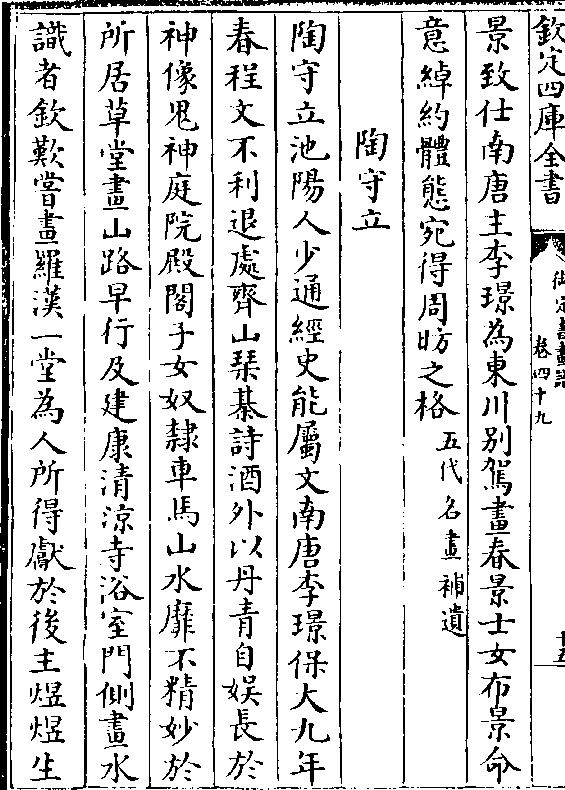 欽定四庫全書
御定書畫譜
卷四十九
十五
景致仕南唐主李璟為東川别駕畫春景士女布景命
意綽約體態宛得周昉之格
五代名畫補遺
陶守立
陶守立池陽人少通經史能屬文南唐李璟保大九年
春程文不利退處齊山琴棊詩酒外以丹青自娱長於
神像鬼神庭院殿閣子女奴隸車馬山水靡不精妙於
所居草堂畫山路早行及建康清涼寺浴室門側畫水
識者欽歎嘗畫羅漢一堂為人所得獻於後主煜煜生